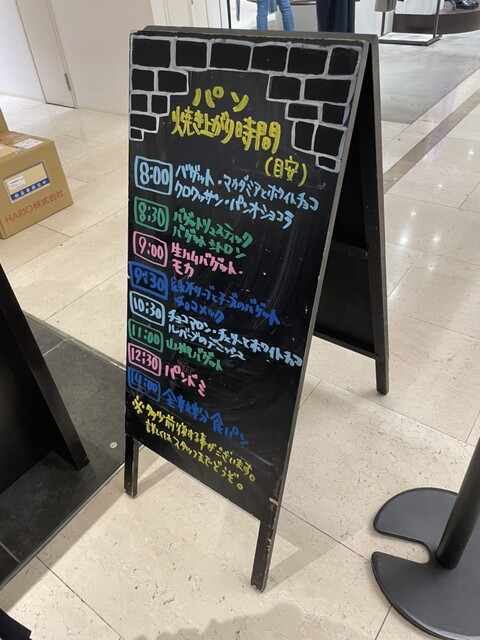 パン
焼き上がり時間
(目安)
8:00 バゲット・マカダミアとホワイトチョコ
クロワッサン・パンオショコラ
8:30 バゲットリュスティック
バゲットシトロン
9:00 生ハムバゲット・
モカ
9:30 緑オリーブとチーズのバゲット
チョコメック
10:30 チョコマロン・チェリーとホワイトチョコ
11:00 バゲット
12:30 パンドミ
14:00 全粒粉食パン
※多少前後する事がございます。
詳しくはスタッフまでどうぞ。
HARIO株式会社